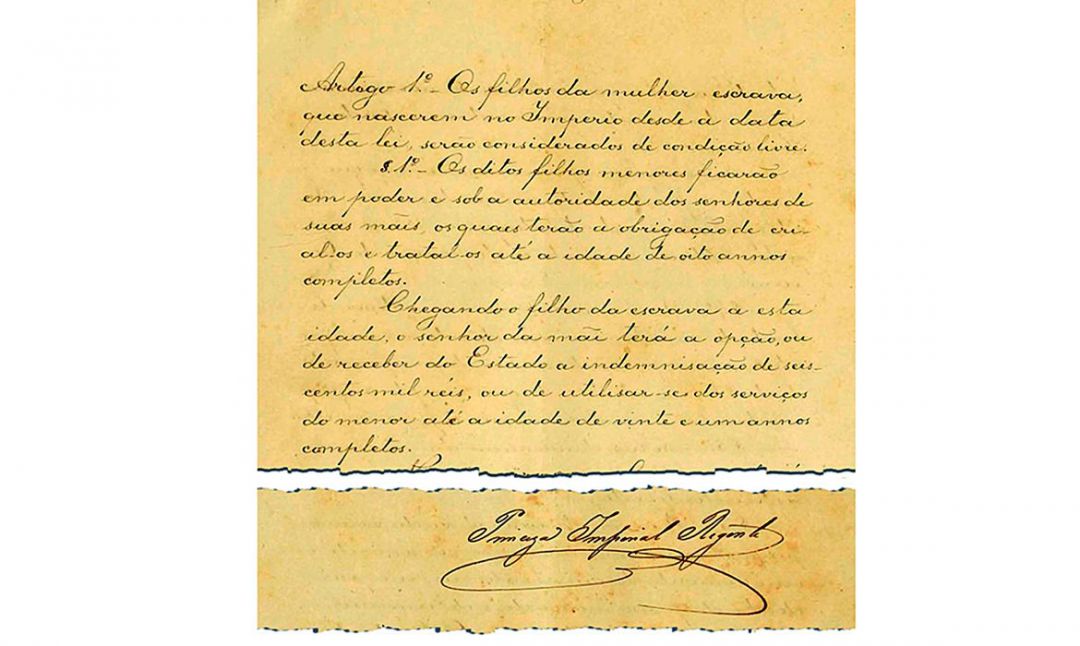 Artigo 1.º – Os filhos da mulher escrava,
que nascerem no Imperio desde a data
desta lei, serão considerados de condição livre.
§. 1.º – Os ditos filhos menores ficarão
em poder e sob a autoridade dos senhores de
suas mãis, os quaes terão a obrigação de cri-
al-os e tratal-os até a idade de oito annos
completos.
Chegando o filho da escrava a esta
idade, o senhor da mãi terá a opção, ou
de receber do Estado a indemnisação de seis-
centos mil réis, ou de utilisar-se dos serviços
do menor até a idade de vinte e um annos
completos.
Princeza Imperial Regente